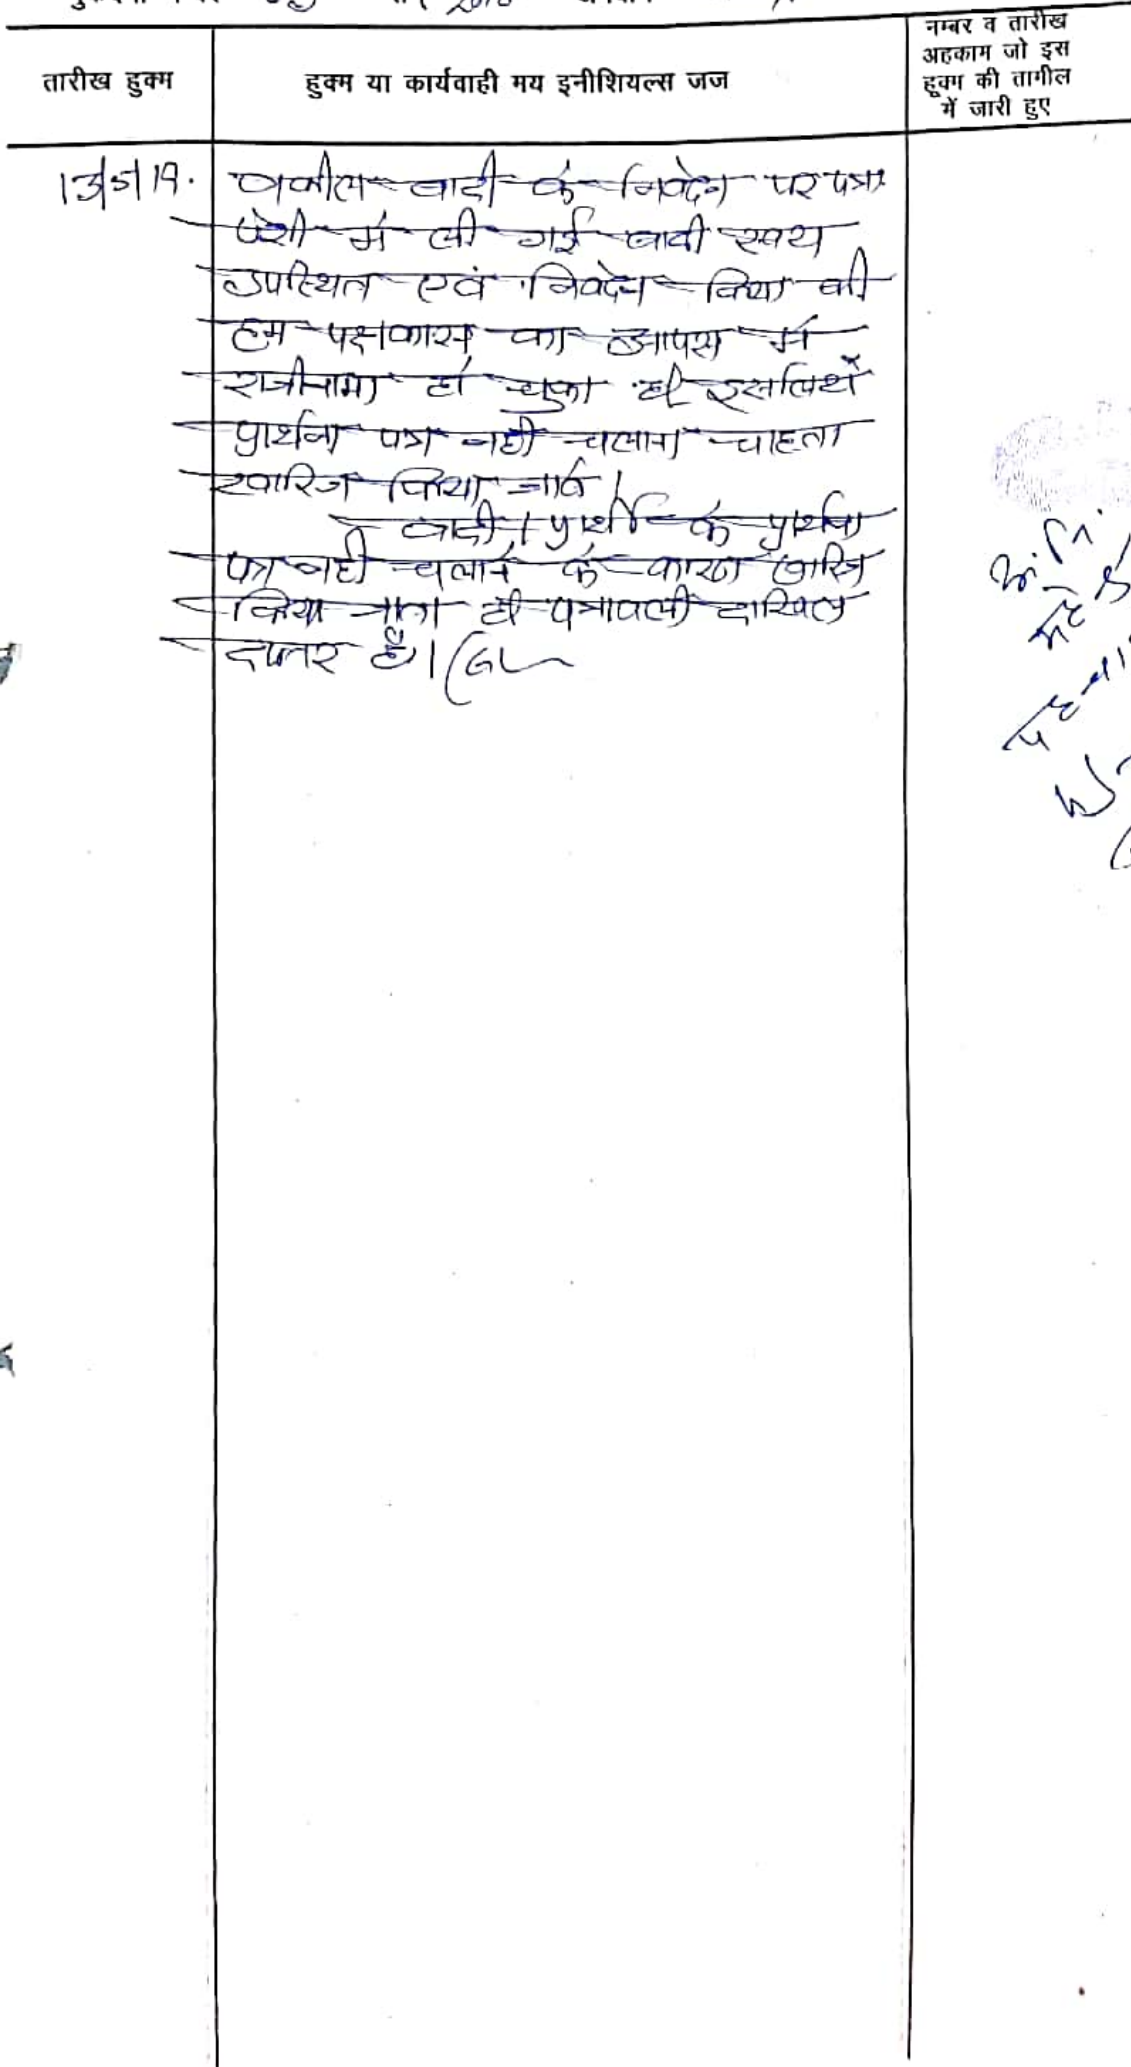 तारीख हुक्म
हुक्म या कार्यवाही मय इनीशियल्स जज
नम्बर व तारीख
अहकाम जो इस
हुक्म की तामील
में जारी हुए
13/5/19.
वकील वादी के निवेदन पर पत्रा
पेशी में ली गई वादी स्वयं
उपस्थित एवं निवेदन किया की
हम पक्षकारान का आपस में
राजीनामा हो चुका है इसलिये
प्रार्थना पत्र नही चलाना चाहता
खारिज किया जावे।
वादी / प्रार्थी के प्रार्थना
पत्र नही चलाने के कारण खारिज
किया जाता है पत्रावली दाखिल
दफ्तर है।